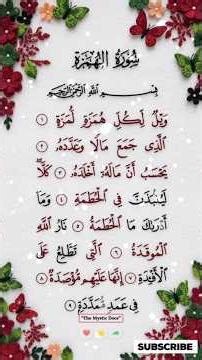 سُورَةُ الهُمَزَة
بِسْمِ اللَّهِ الرَّحْمَٰنِ الرَّحِيمِ
وَيْلٌ لِّكُلِّ هُمَزَةٍ لُّمَزَةٍ ١
الَّذِى جَمَعَ مَالًا وَعَدَّدَهُۥ ٢
يَحْسَبُ أَنَّ مَالَهُۥٓ أَخْلَدَهُۥ ٣ كَلَّا
لَيُنۢبَذَنَّ فِى الْحُطَمَةِ ٤ وَمَآ
أَدْرَىٰكَ مَا الْحُطَمَةُ ٥ نَارُ اللَّهِ
الْمُوقَدَةُ ٦ الَّتِى تَطَّلِعُ عَلَى
الْأَفْـِٔدَةِ ٧ إِنَّهَا عَلَيْهِم مُّؤْصَدَةٌ ٨
فِى عَمَدٍ مُّمَدَّدَةٍۭ ٩
"The Mystic Door"
SUBSCRIBE